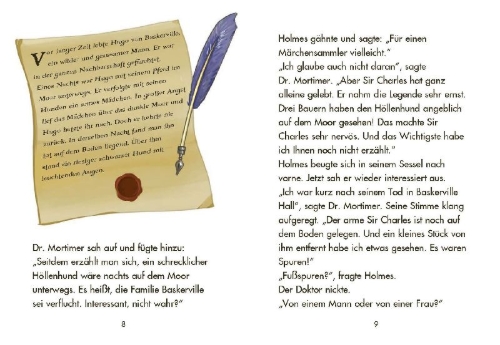 Vor langer Zeit lebte Hugo von Baskerville,
ein wilder und grausamer Mann. Er war
in der ganzen Nachbarschaft gefürchtet.
Eines Nachts war Hugo mit seinem Pferd im
Moor unterwegs. Er verfolgte mit seinen
Hunden ein armes Mädchen. In großer Angst
lief das Mädchen über das dunkle Moor und
Hugo hetzte ihr nach. Doch er kehrte nie
zurück. In derselben Nacht fand man ihn
tot auf dem Boden liegend. Über ihm
stand ein riesiger schwarzer Hund mit
leuchtenden Augen.
Dr. Mortimer sah auf und fügte hinzu:
„Seitdem erzählt man sich, ein schrecklicher
Höllenhund wäre nachts auf dem Moor
unterwegs. Es heißt, die Familie Baskerville
sei verflucht. Interessant, nicht wahr?“
8
Holmes gähnte und sagte: „Für einen
Märchensammler vielleicht.“
„Ich glaube auch nicht daran“, sagte
Dr. Mortimer. „Aber Sir Charles hat ganz
alleine gelebt. Er nahm die Legende sehr ernst.
Drei Bauern haben den Höllenhund angeblich
auf dem Moor gesehen! Das machte Sir
Charles sehr nervös. Und das Wichtigste habe
ich Ihnen noch nicht erzählt.“
Holmes beugte sich in seinem Sessel nach
vorne. Jetzt sah er wieder interessiert aus.
„Ich war kurz nach seinem Tod in Baskerville
Hall“, sagte Dr. Mortimer. Seine Stimme klang
aufgeregt. „Der arme Sir Charles ist noch auf
dem Boden gelegen. Und ein kleines Stück von
ihm entfernt habe ich etwas gesehen. Es waren
Spuren!“
„Fußspuren?“, fragte Holmes.
Der Doktor nickte.
„Von einem Mann oder von einer Frau?“
9